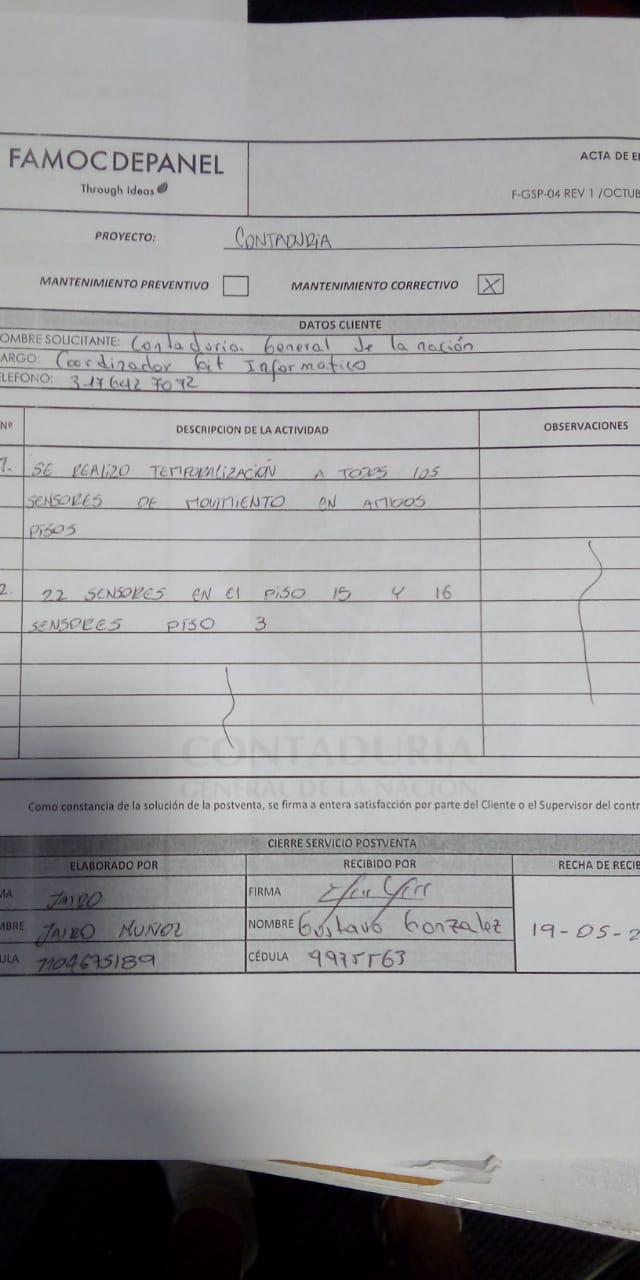 FAMOCDEPANEL
Through Ideas
ACTA DE E
F-GSP-04 REV 1 /OCTUB
PROYECTO: CONTADURIA
MANTENIMIENTO PREVENTIVO MANTENIMIENTO CORRECTIVO X
DATOS CLIENTE
OMBRE SOLICITANTE: Contaduria General de la nación
ARGO: Coordinador Informatico
ELEFONO: 3176427092
Nº DESCRIPCION DE LA ACTIVIDAD OBSERVACIONES
1. SE REALIZO TEMPORALIZACIÓN A TODOS LOS
SENSORES DE MOVIMIENTO EN AMBOS
PISOS
2. 22 SENSORES EN El PISO 15 Y 16
SENSORES PISO 3
CONTADURÍA
GENERAL DE LA NACIÓN
Como constancia de la solución de la postventa, se firma a entera satisfacción por parte del Cliente o el Supervisor del contr
CIERRE SERVICIO POSTVENTA
ELABORADO POR RECIBIDO POR RECHA DE RECIB
MA JAIRO FIRMA
MBRE JAIRO MUÑOZ NOMBRE Gustavo Gonzalez 19-05-2
ULA 1104675189 CÉDULA 9975563